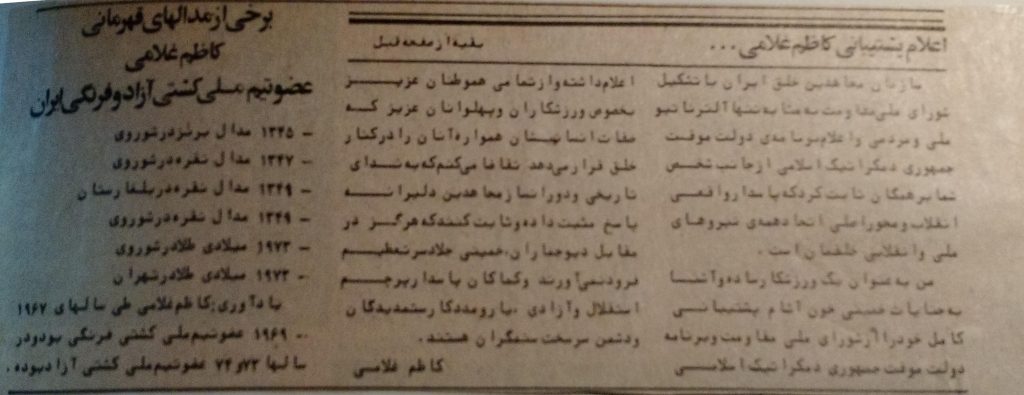 اعلام پشتیبانی کاظم غلامی ...
بقیه از صفحه قبل
سازمان مجاهدین خلق ایران با تشکیل
شورای ملی مقاومت به مثابه تنها آلترناتیو
ملی و مردمی و اعلام برنامه‌ی دولت موقت
جمهوری دمکراتیک اسلامی از جانب شخص
شما بر همگان ثابت کرد که پاسدار واقعی
انقلاب و محور اصلی اتحاد همه‌ی نیروهای
ملی و انقلابی خلقمان است.
من به عنوان یک ورزشکار ساده و آشنا
به جنایات خمینی خون آشام پشتیبانی
کامل خود را از شورای ملی مقاومت و برنامه
دولت موقت جمهوری دمکراتیک اسلامی
اعلام داشته و از تمامی هموطنان عزیز
بخصوص ورزشکاران و پهلوانان عزیز که
صفات انسانیشان همواره آنان را در کنار
خلق قرار می‌دهد تقاضا می‌کنم که به ندای
تاریخی و دورانساز مجاهدین دلیرانه
پاسخ مثبت داده و ثابت کنند که هرگز در
مقابل دیو جماران، خمینی جلاد سر تعظیم
فرود نمی‌آورند و کماکان پاسدار پرچم
استقلال و آزادی، یار و مددکار ستمدیدگان
و دشمن سرسخت ستمگران هستند.
کاظم غلامی
برخی از مدالهای قهرمانی
کاظم غلامی
عضو تیم ملی کشتی آزاد و فرنگی ایران
- ۱۳۴۵ مدال برنز در شوروی
- ۱۳۴۷ مدال نقره در شوروی
- ۱۳۴۹ مدال نقره در بلغارستان
- ۱۳۴۹ مدال نقره در شوروی
- ۱۹۷۳ میلادی طلا در شوروی
- ۱۹۷۳ میلادی طلا در تهران
یادآوری: کاظم غلامی طی سالهای ۱۹۶۷
- ۱۹۶۹ عضو تیم ملی کشتی فرنگی بود و در
سالها ۷۳ و ۷۴ عضو تیم ملی کشتی آزاد بوده.